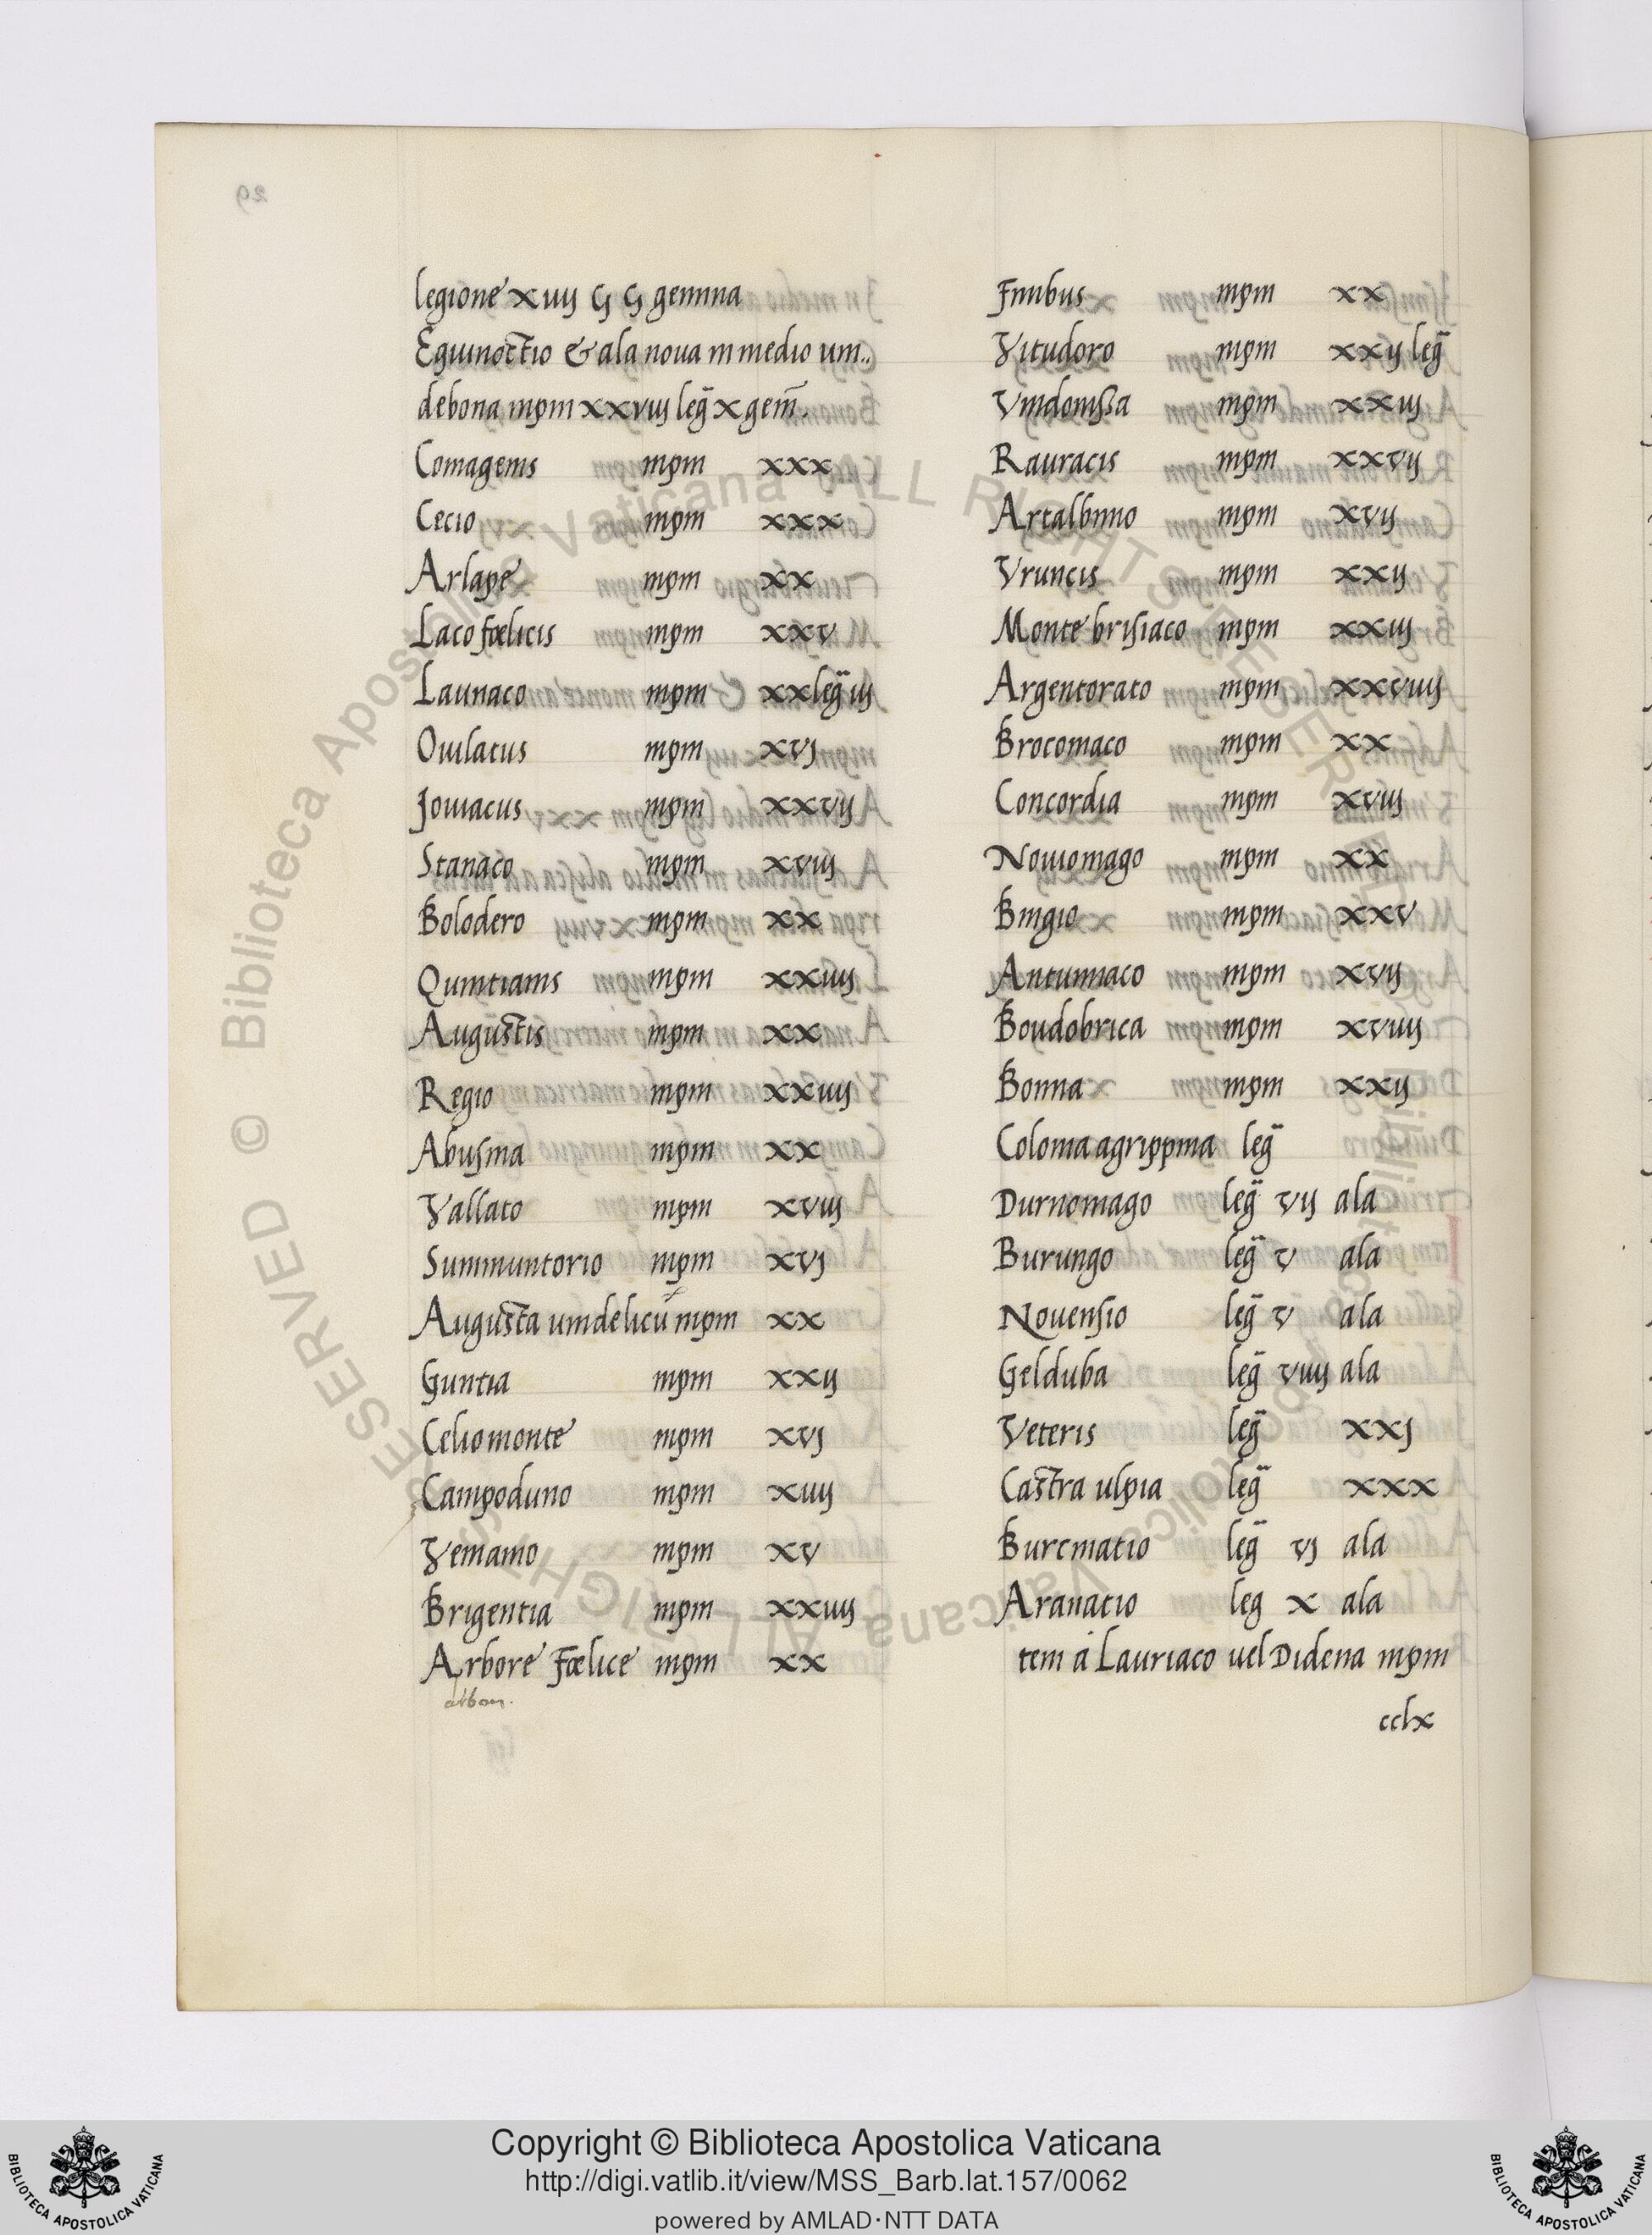 legione xiiij G G gemina
Equinoctio & ala noua in medio uin..
debona mpm xxviij leg̃ x gem̃.
Comagenis mpm xxx
Cecio mpm xxx
Arlape mpm xx
Laco fœlicis mpm xxv
Lauriaco mpm xx leg̃ iij
Ouilatus mpm xvj
Jouiacus mpm xxvij
Stanaco mpm xviij
Bolodero mpm xx
Quintianis mpm xxiiij
Augustis mpm xx
Regio mpm xxiiij
Abusina mpm xx
Vallato mpm xviij
Summuntorio mpm xvj
Augusta uindelicũ mpm xx
Guntia mpm xxij
Celio monte mpm xvj
Campoduno mpm xiiij
Vemamo mpm xv
Brigentia mpm xxiiij
Arbore Fœlice mpm xx
arbon.
Finibus mpm xx
Vitudoro mpm xxij leg̃
Vindonissa mpm xxiij
Rauracis mpm xxvij
Artalbinno mpm xvij
Vruncis mpm xxij
Monte brisiaco mpm xxiij
Argentorato mpm xxviiij
Brocomaco mpm xx
Concordia mpm xviij
Nouiomago mpm xx
Bingio mpm xxv
Antunnaco mpm xvij
Boudobrica mpm xviiij
Bonna mpm xxij
Colonia agrippina leg̃
Durnomago leg̃ vij ala
Burungo leg̃ v ala
Nouensio leg̃ v ala
Gelduba leg̃ viiij ala
Veteris leg̃ xxj
Castra ulpia leg̃ xxx
Burcinatio leg̃ vj ala
Aranatio leg x ala
tem a Lauriaco uel Didena mpm
cclx
29
© Biblioteca Apostolica Vaticana ALL RIGHTS RESERVED
Copyright © Biblioteca Apostolica Vaticana
http://digi.vatlib.it/view/MSS_Barb.lat.157/0062
powered by AMLAD·NTT DATA
BIBLIOTECA APOSTOLICA VATICANA
BIBLIOTECA APOSTOLICA VATICANA